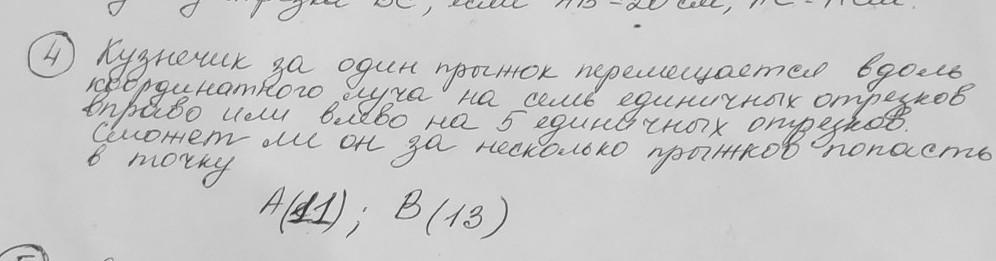 отрезка ВС, если АВ = 20 см,
4 Кузнечик за один прыжок перемещается вдоль
координатного луча на семь единичных отрезков
вправо или влево на 5 единичных отрезков.
Сможет ли он за несколько прыжков попасть
в точку
А(11); В(13)